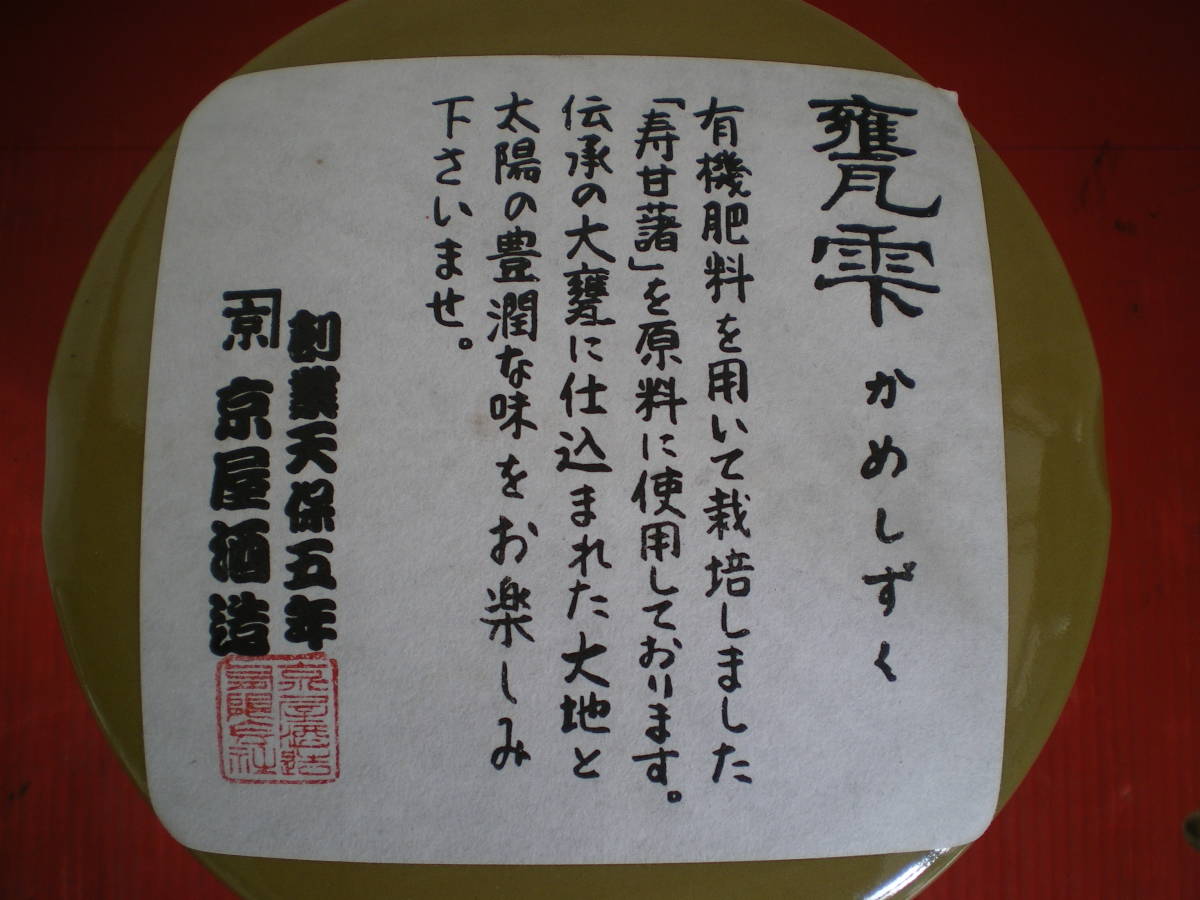 甕雫 かめしずく
有機肥料を用いて栽培しました
「寿甘藷」を原料に使用しております。
伝承の大甕に仕込まれた大地と
太陽の豊潤な味をお楽しみ
下さいませ。
創業天保五年
京 京屋酒造
京屋酒造
有限会社